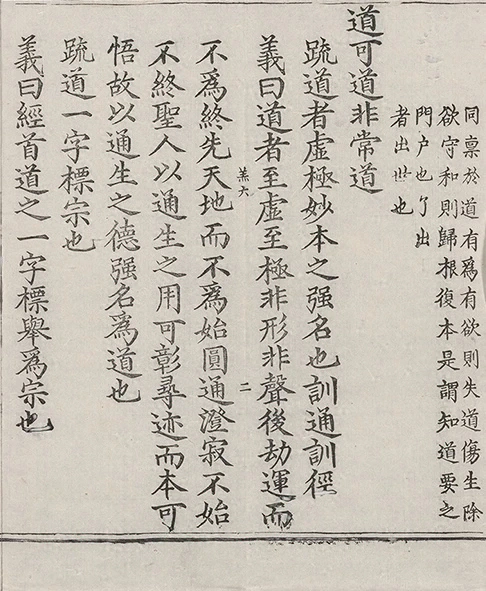 同稟於道有爲有欲則失道傷生除
欲守和則歸根復本是謂知道要之
門户也了出
者出世也
道可道非常道
疏道者虛極妙本之强名也訓通訓徑
義曰道者至虛至極非形非聲後劫運而
羔六
二
不爲終先天地而不爲始圓通澄寂不始
不終聖人以通生之用可彰尋迹而本可
悟故以通生之德强名爲道也
疏道一字標宗也
義曰經首道之一字標舉爲宗也